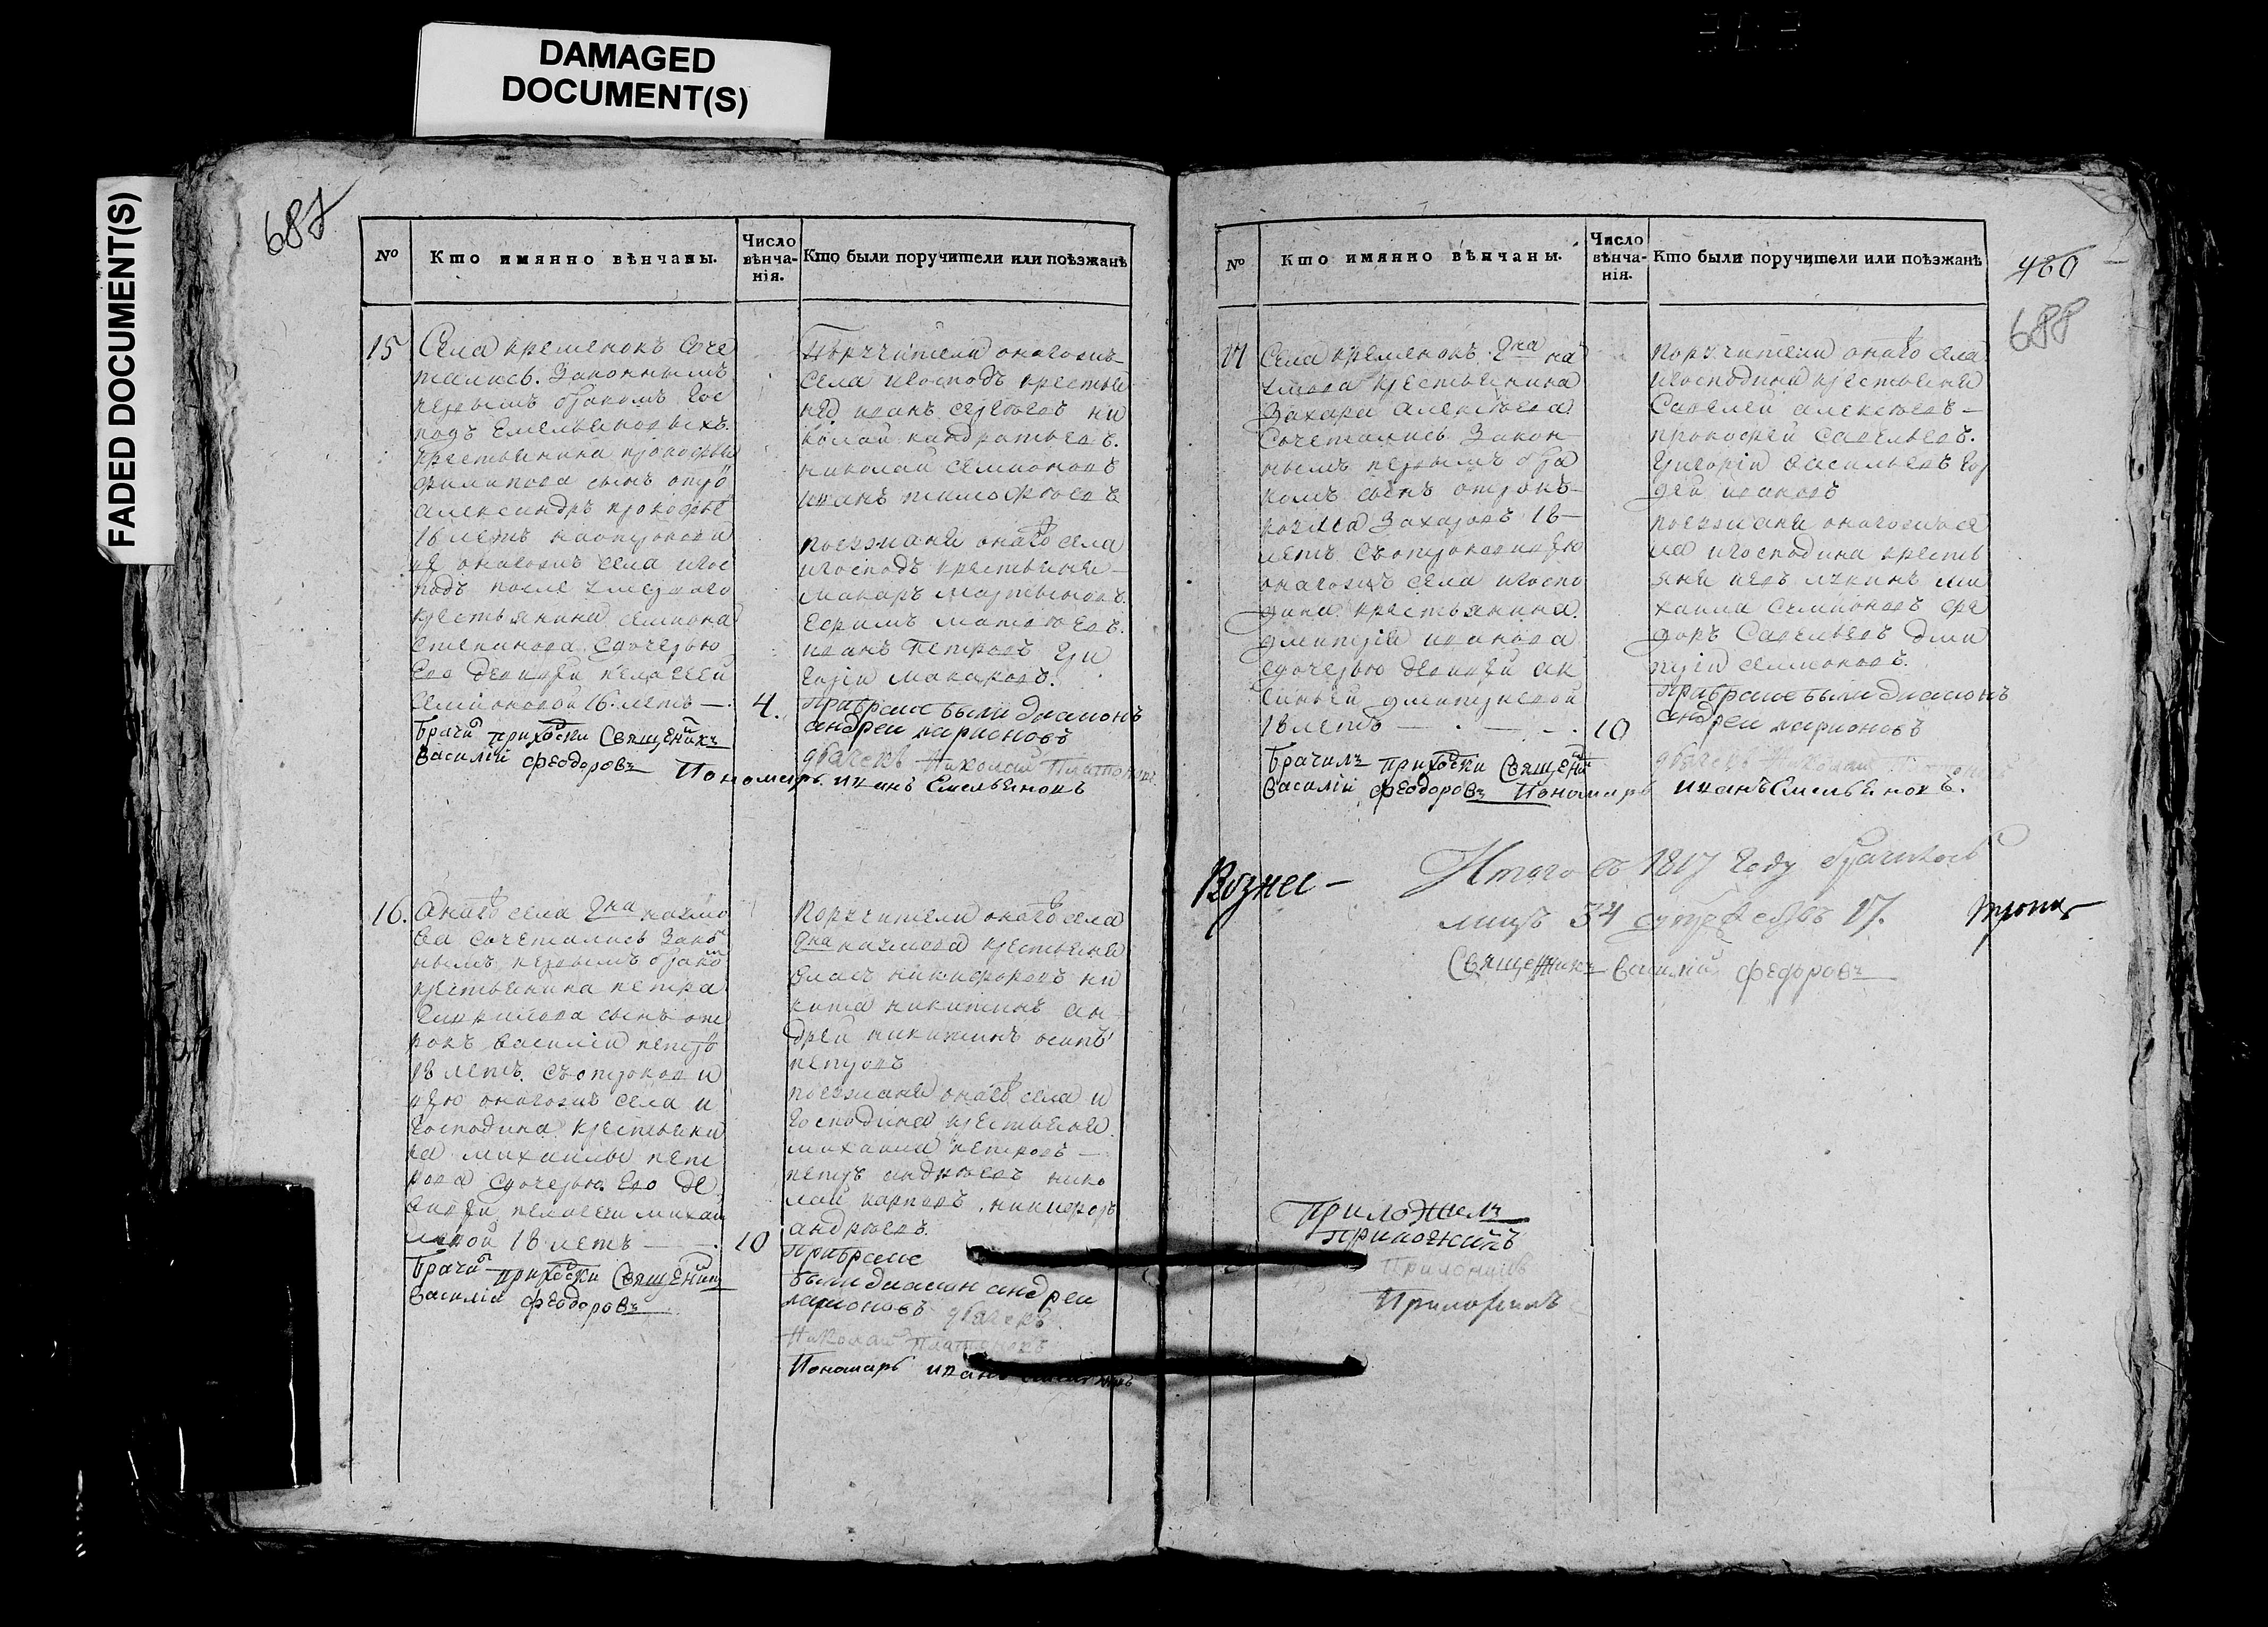 DAMAGED
DOCUMENT(S)
FADED DOCUMENT(S)
687
№
Кто имянно вѣнчаны.
Число вѣнча-нія.
Кто были поручители или поѣзжанѣ
15
Села кременокъ соче
тались. Законнымъ
первымъ бракомъ Гос
подъ Емельяновыхъ.
крестьянина прокофья
филипова сынъ отро
александръ прокофье
16 летъ наотрокови
це онагожъ села игос
подъ после умершаго
крестьянина семиона
степанова сдочерью
Его девицей пелагеей
Семионовой 16. летъ —
4.
Брачи приходски Священикъ
Василій феодоровъ
Поручители онагожъ
села игосподъ крестья
не иванъ сергеевъ ни
колай кандратьевъ.
николай семионовъ
иванъ тимофеевъ
поезжаня онаго села
игосподъ крестьяня
макаръ мартыновъ.
Ефимъ матвеевъ.
иванъ петровъ гри
горiи макаровъ.
Прибраке были диаконъ
андреи ларионовъ
дьячекъ Николай Платоновъ
Пономарь иванъ Емельяновъ
16.
Онаго села Гна
ва сочетались Зако
нымъ первымъ брако
крестьянина петра
Гаврилова сынъ от
рокъ василiи петро
18 летъ. съотрокови
цею онагожъ села и
Господина крестьяни
на михаилы пет
рова сдочерью Его де
вицей пелагеи михаи
ловой 18 летъ —
10
Брачи приходски Священик
Василій феодоровъ
Поручители онаго села
Гна крестьяня
власъ никифоровъ ни
кита никитинъ ан
дреи никитинъ осипъ
петровъ
поезжаня онаго села и
Господина крестьяня
михаила петровъ —
петръ андреевъ нико
лай карповъ, никифоръ
андреевъ.
Прибраке
были диакон андреи
ларионовъ дьячекъ
Николай Платоновъ
Пономарь иванъ
460
688
№
Кто имянно вѣнчаны.
Число вѣнча-нія.
Кто были поручители или поѣзжанѣ
17
Села кременокъ Гна на
крестьянина
Захара алексеева
Сочетались Закон
нымъ первымъ бра
комъ сынъ отрокъ
Захаровъ 18 —
летъ съотроковицею
онагожъ села игоспо
дина крестьянина
дмитрiя иванова
сдочерью девицей ак
синьей дмитриевой
18 летъ —
10
Брачилъ приходски Священи
Василій феодоровъ
Поручители онаго села
игосподина крестьяня
Савелей алексеевъ —
прокофей савельевъ.
Григорiи васильевъ
иванов
поезжаня онагожъ се
ла игосподина кресть
яня ми
хаила семионовъ фе
доръ Савельевъ дми
трiи семионовъ.
Прибраке были диаконъ
андреи ларионовъ
дьячекъ Николай
Пономарь иванъ Емельяновъ.
Вознес —
Итого въ 1817 году браковъ
лицъ 34 17.
Священникъ Василій федоровъ
Приложилъ
Приложилъ
Приложилъ
Приложилъ